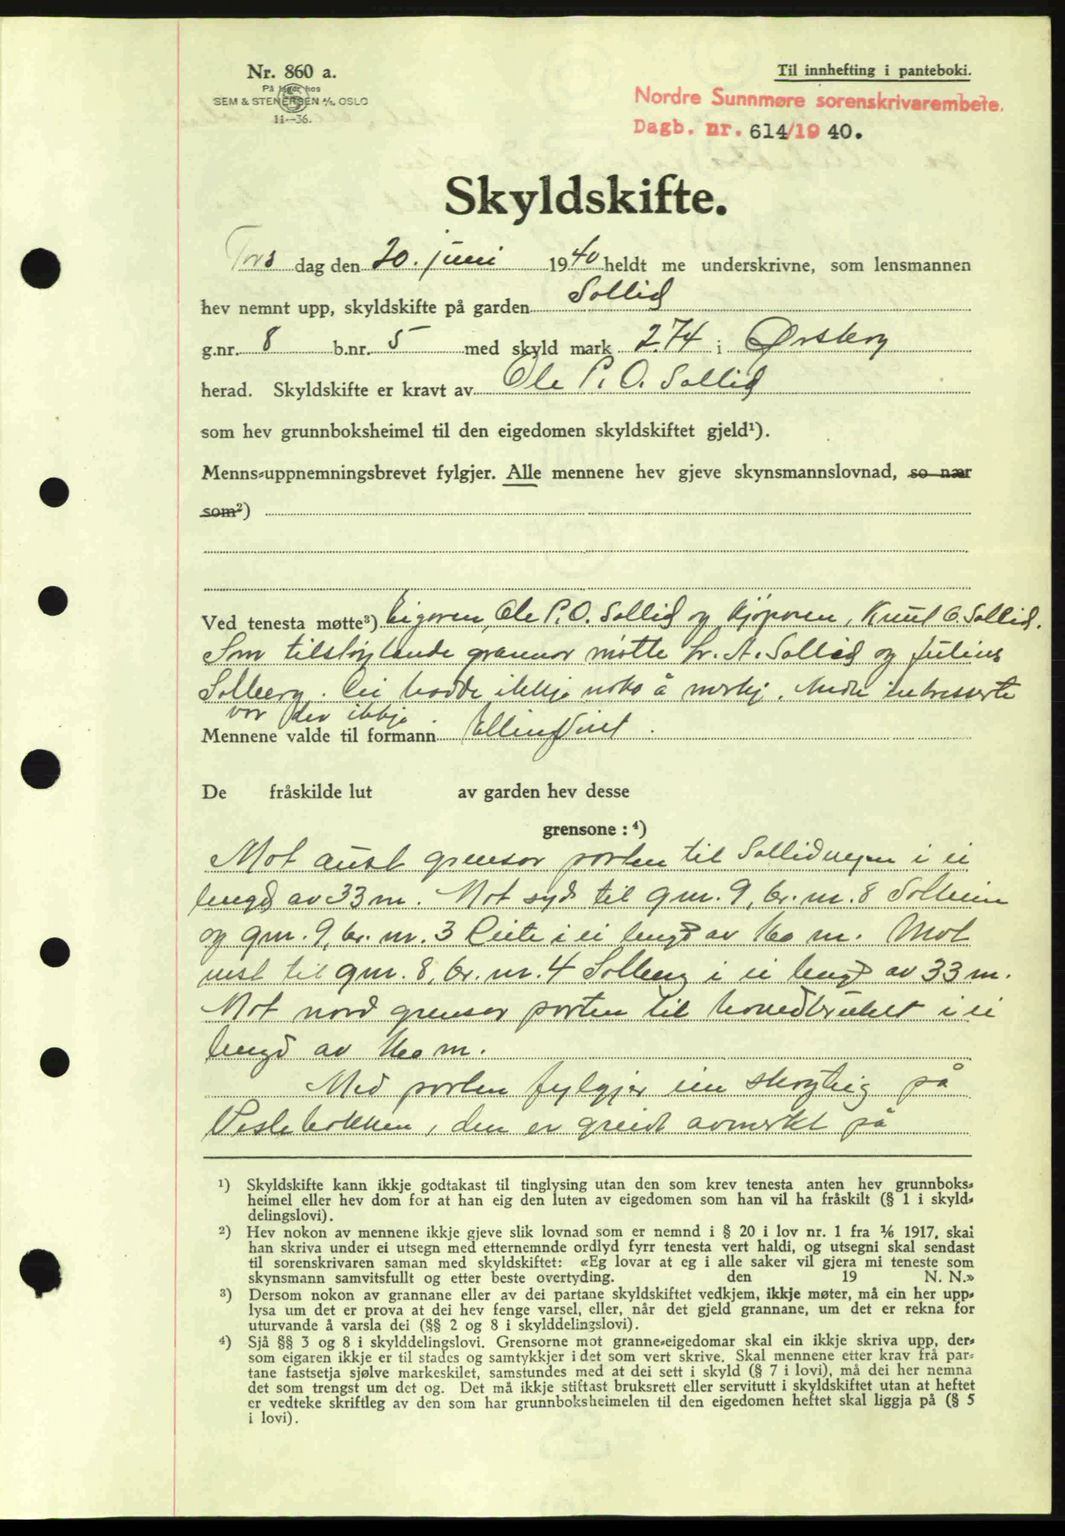 Nr. 860 a.
På lager hos
SEM & STENERSEN A/S, OSLO
11-36.
Til innhefting i panteboki.
Nordre Sunnmøre sorenskrivarembete.
Dagb. nr. 614/1940.
Skyldskifte.
Tors dag den 20. juni 1940 heldt me underskrivne, som lensmannen
hev nemnt upp, skyldskifte på garden Sollid
g.nr. 8 b.nr. 5 med skyld mark 2.74 i Ørskog
herad. Skyldskifte er kravt av Ole P. O. Sollid
som hev grunnboksheimel til den eigedomen skyldskiftet gjeld¹).
Menns-uppnemningsbrevet fylgjer. Alle mennene hev gjeve skynsmannslovnad, so nær
som²)
Ved tenesta møtte³) Eigaren, Ole P. O. Sollid og kjøparen, Knut O. Sollid.
Som tilstøytande grannar møtte Kr. A. Sollid og Julius
Solberg. Dei hadde ikkje noko å merkj. Andre interesserte
var der ikkje.
Mennene valde til formann Elling Viset.
De fråskilde lut av garden hev desse
grensone: ⁴)
Mot aust grensar porten til Sollidvegen i ei
lengd av 33 m. Mot syd til gnr. 9, br. nr. 8 Solheim
og gnr. 9, br. nr. 3 Reite i ei lengd av 160 m. Mot
vest til gnr. 8, br. nr. 4 Solberg i ei lengd av 33 m.
Mot nord grensar parten til hovedbruket i ei
lengd av 160 m.
Med parten fylgjer ein skogteig på
Veslebakken, den er greidt avmerkt på
¹) Skyldskifte kann ikkje godtakast til tinglysing utan den som krev tenesta anten hev grunnboks-
heimel eller hev dom for at han eig den luten av eigedomen som han vil ha fråskilt (§ 1 i skyld-
delingslovi).
²) Hev nokon av mennene ikkje gjeve slik lovnad som er nemnd i § 20 i lov nr. 1 fra 1/6 1917, skal
han skriva under ei utsegn med etternemnde ordlyd fyrr tenesta vert haldi, og utsegni skal sendast
til sorenskrivaren saman med skyldskiftet: «Eg lovar at eg i alle saker vil gjera mi teneste som
skynsmann samvitsfullt og etter beste overtyding. den 19 N. N.»
³) Dersom nokon av grannane eller av dei partane skyldskiftet vedkjem, ikkje møter, må ein her upp-
lysa um det er prova at dei hev fenge varsel, eller, når det gjeld grannane, um det er rekna for
uturvande å varsla dei (§§ 2 og 8 i skylddelingslovi).
⁴) Sjå §§ 3 og 8 i skylddelingslovi. Grensorne mot granne-eigedomar skal ein ikkje skriva upp, der-
som eigaren ikkje er til stades og samtykkjer i det som vert skrive. Skal mennene etter krav frå par-
tane fastsetja sjølve markeskilet, samstundes med at dei sett i skyld (§ 7 i lovi), må dei her nemna
det som trengst um det og. Det må ikkje stiftast bruksrett eller servitutt i skyldskiftet utan at heftet
er vedteke skriftleg av den som har grunnboksheimelen til den eigedomen heftet skal liggja på (§ 5
i lovi).